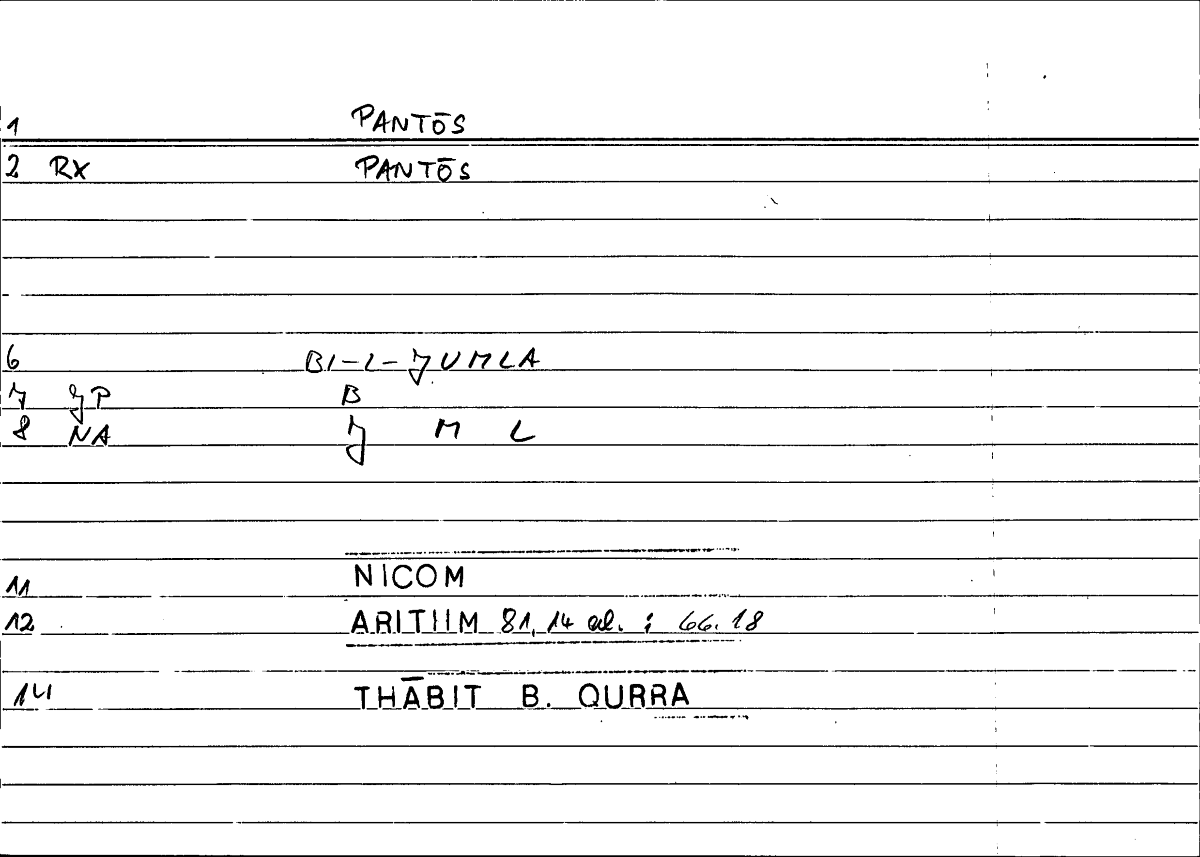 1 PANTŌS
2 RX PANTŌS
6 BI-L-JUMLA
7 JP B
8 NA J M L
11 NICOM
12 ARITHM 81,14 al. : 66.18
14 THĀBIT B. QURRA